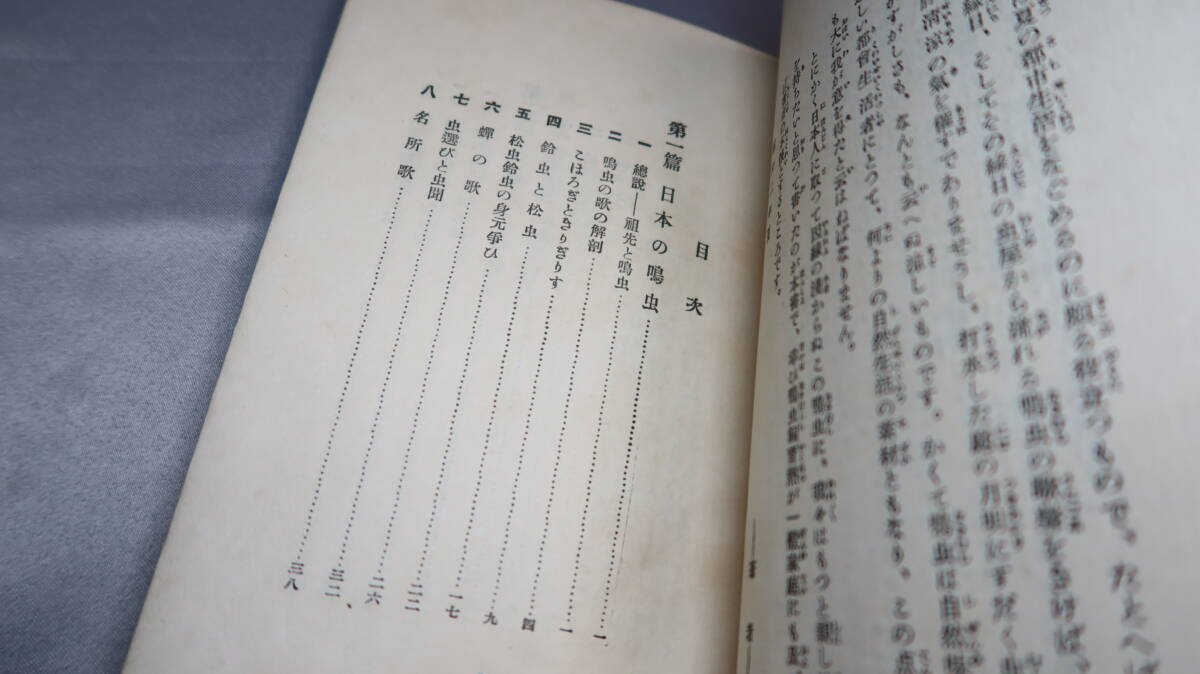 夏の都市生活をなごめるのに頗る役立つもので、たとへば
縁日、そしてその縁日の虫屋から洩れる鳴虫の聯聲をきけば、
清涼の氣を催すでありませうし、打水した庭の月明にすだく虫
すがしさも、なんとも云へぬ涼しいものです。かくて鳴虫は自然
しい都會生活者にとつて、何よりの自然生活の素材ともなり、この点
も大に我が意を得たと云はねばなりません。
とにかく日本人に取つて因縁の淺からぬこの鳴虫に、
を持ちたいと思つて書いたのが本書で、
とするところです。
著者
目次
第一篇 日本の鳴虫……一
一 總說―祖先と鳴虫……一
二 鳴虫の歌の解剖……四
三 こほろぎときりぎりす……九
四 鈴虫と松虫……一七
五 松虫鈴虫の身元爭ひ……二二
六 蟬の歌……二六
七 虫選びと虫聞……三二
八 名所歌……三八